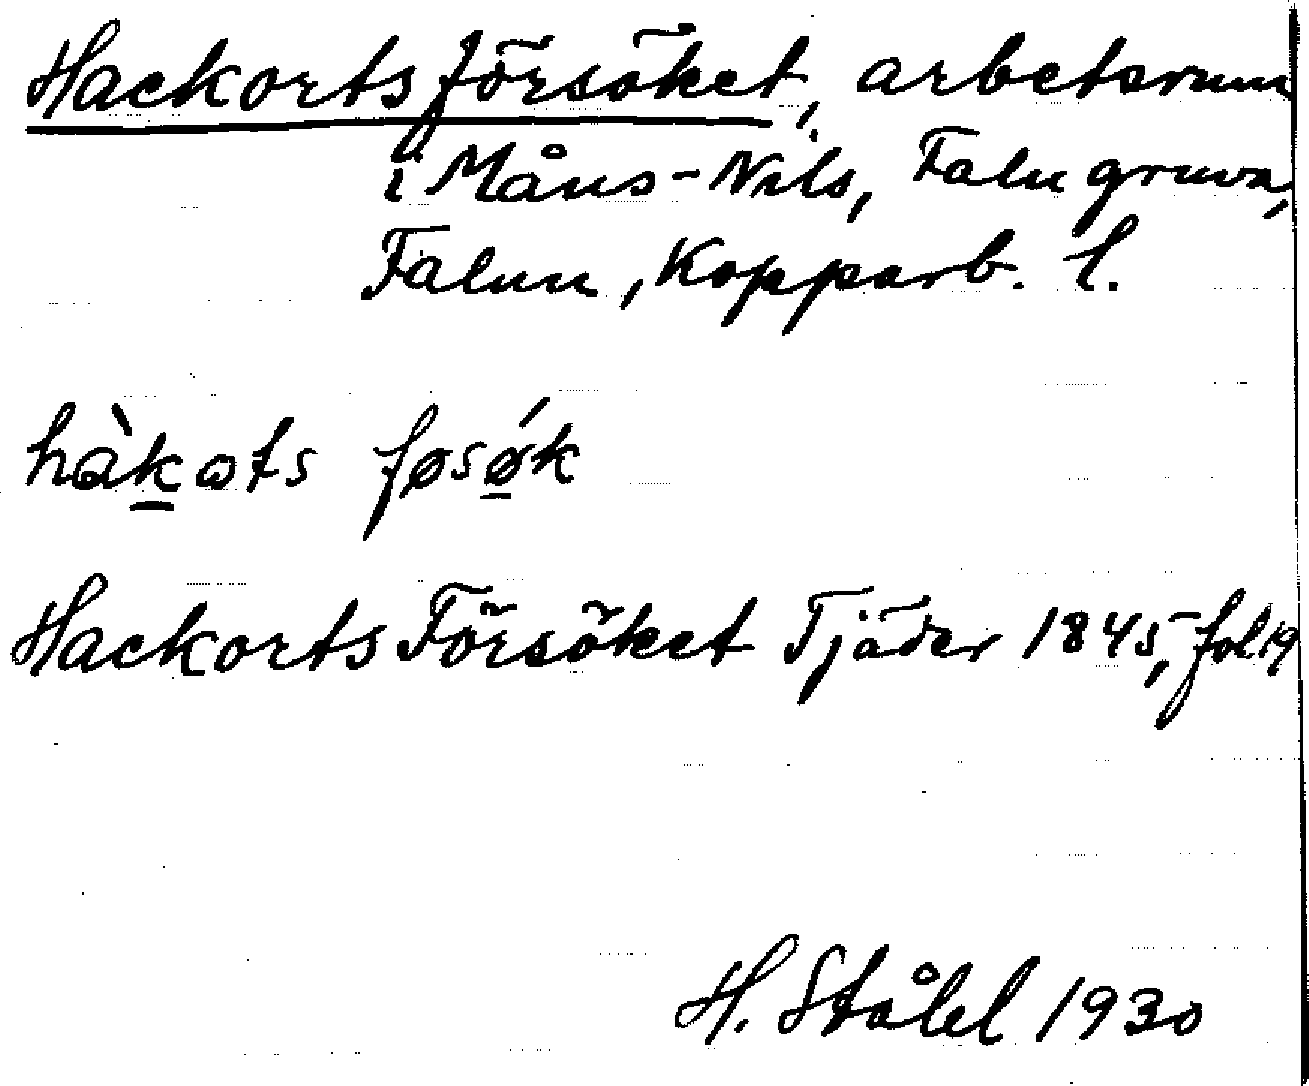 Hackortsförsöket, arbetsrum
i Måns-Nils, Falu gruva,
Falun, Kopparb. l.
hàkots føsǿk
Hackorts Försöket Tjäder 1845, fol. 19
H. Ståhl 1930